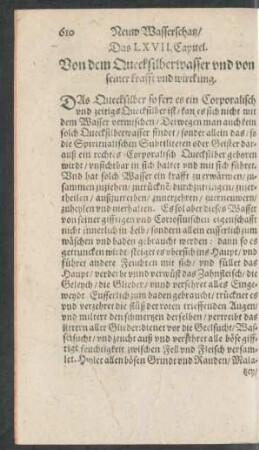 610 Neuw Wasserschatz/
Das LXVII. Capitel.
Von dem Quecksilberwasser vnd von
seiner krafft vnd wirckung.
DAs Quecksilber so fern es ein Corporalisch
vnd zeitigs Quecksilber ist/ kan es sich nicht mit
dem Wasser vermischen/ Derwegen man auch kein
solch Quecksilberwasser findet/ sonder allein das/ so
die Spiritualischen Subtiliteten oder Geister dar-
auß ein rechts Corporalisch Quecksilber geboren
wirdt/ vnsichtbar in sich haltet vnd mit sich führet.
Vnd hat solch Wasser ein krafft zu erwärmen/ zu-
sammen zuziehen/ zurück durchzutringen/ zuzer-
theilen/ außzutreiben/ zuuerzehren/ zuerneuwern/
zuheylen vnd zuerhalten. Es sol aber dieses Wasser
von seiner gifftigen vnd Corosiuischen eigenschafft
nicht innerlich in leib/ sondern allein eusserlich zum
wäschen vnd baden gebraucht werden: dann so es
getruncken wirdt/ steiget es vbersich ins Haupt/ vnd
führet andere Feuchten mit sich/ vnd füllet das
Haupt/ verderbt vnnd verwüst das Zahnfleisch/ die
Geleych/ die Glieder/ vnnd versehret alles Einge-
weydt. Eusserlich zum baden gebraucht/ trücknet es
vnd verzehret die flüß der roten trieffenden Augen/
vnd miltert den schmertzen derselben/ vertreibt das
zittern aller Glieder/ dienet vor die Geelsucht/ Was-
sersucht/ vnd zeucht auß vnd verzehret alle böse giff-
tige feuchtigkeit zwischen Fell vnd Fleisch versam-
let. Heylet allen bösen Grindt vnd Rauden/ Mala-
tzey/